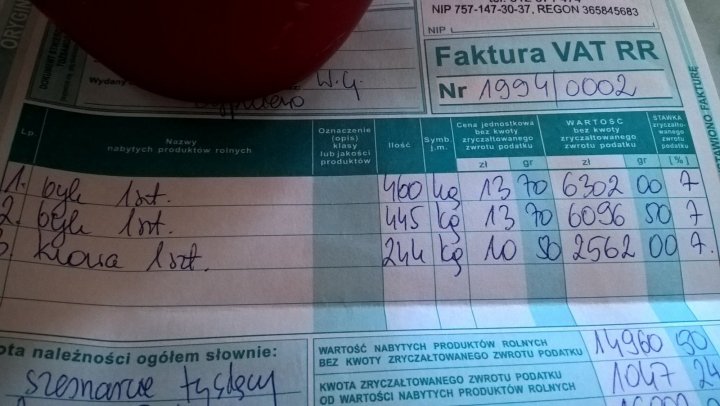 NIP 757-147-30-37, REGON 365845683
NIP
ORYGIN
Faktura VAT RR
Wydany
W.G.
Nr 1994/0002
Lp.
Nazwy
nabytych produktów rolnych
Oznaczenie
(opis)
klasy
lub jakości
produktów
Ilość
Symb.
j.m.
Cena jednostkowa
bez kwoty
zryczałtowanego
zwrotu podatku
zł gr
WARTOŚĆ
bez kwoty
zryczałtowanego
zwrotu podatku
zł gr
STAWKA
zryczałto-
wanego
zwrotu
podatku
[%]
WIONO FAKTURĘ
1. byk 1szt. 460 kg 13 70 6302 00 7
2. byk 1szt. 445 kg 13 70 6096 50 7
3. krowa 1szt. 244 kg 10 50 2562 00 7.
ota należności ogółem słownie:
szesnaście tysięcy
WARTOŚĆ NABYTYCH PRODUKTÓW ROLNYCH
BEZ KWOTY ZRYCZAŁTOWANEGO ZWROTU PODATKU
14960 50
KWOTA ZRYCZAŁTOWANEGO ZWROTU PODATKU
OD WARTOŚCI NABYTYCH PRODUKTÓW ROLNYCH
1047 24